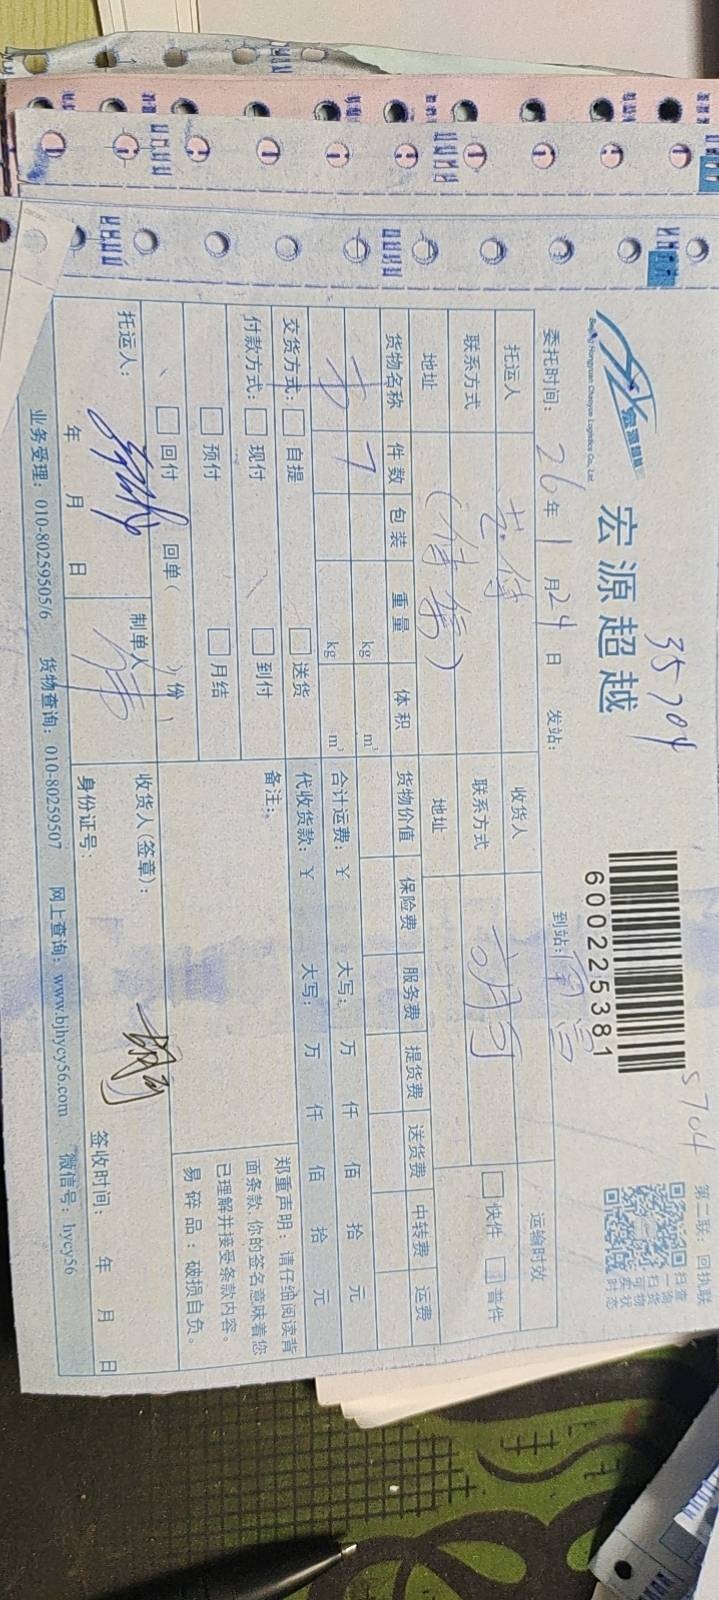 35704
5704
第二联：回执联
宏源超越
Beijing Hongyuan Chaoyue Logistics Co., Ltd.
宏源超越
600225381
扫一扫
查询货物实时状态
委托时间：26年1月24日 发站： 到站：南宫
托运人 收货人 运输时效
联系方式 联系方式 快件 普件
地址 地址
货物名称 件数 包装 重量 体积 货物价值 保险费 服务费 提货费 送货费 中转费 运费
7 kg m³ 合计运费：¥ 大写： 万 仟 佰 拾 元
kg m³ 代收货款：¥ 大写： 万 仟 佰 拾 元
交货方式： 自提 送货 备注：
付款方式： 现付 到付
预付 月结
回付 回单( )份
郑重声明：请仔细阅读背
面条款，你的签名意味着您
已理解并接受条款内容。
易碎品：破损自负。
托运人： 制单人 收货人(签章)：
年 月 日 身份证号： 签收时间： 年 月 日
业务受理：010-80259505/6 货物查询：010-80259507 网上查询：www.bjhycy56.com 微信号：hycy56